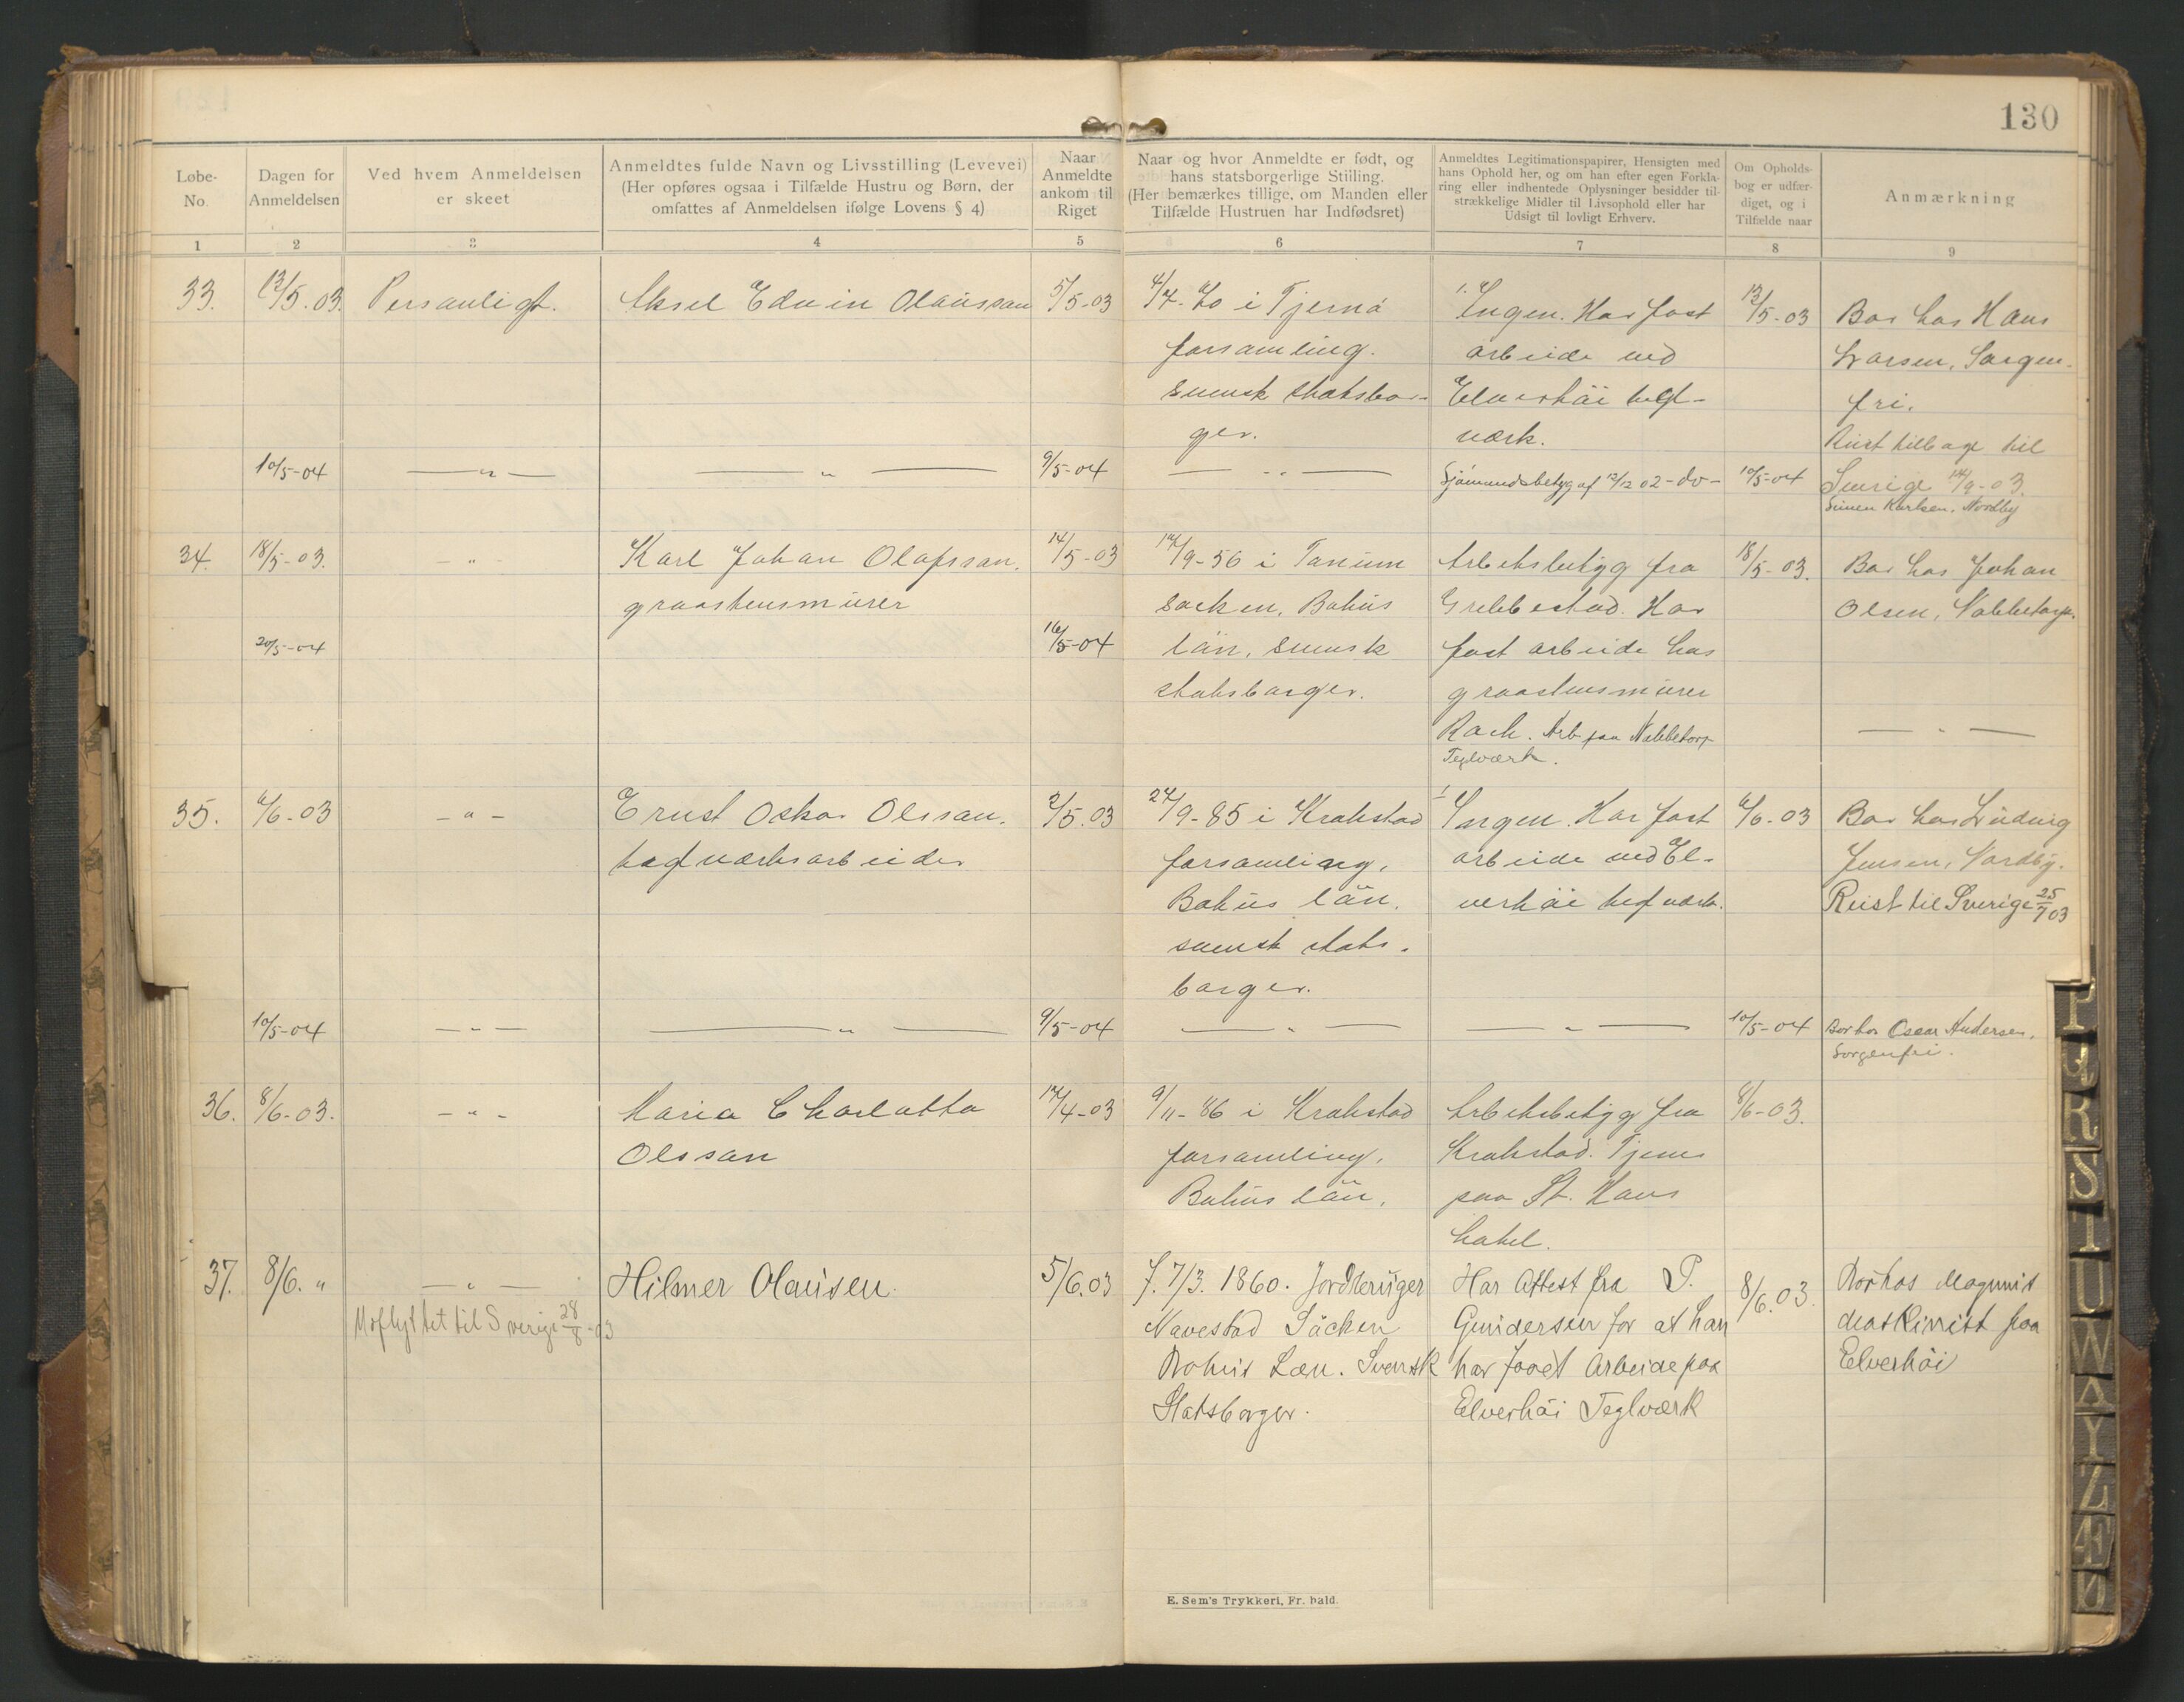 130
Løbe-No.
Dagen for Anmeldelsen
Ved hvem Anmeldelsen er skeet
Anmeldtes fulde Navn og Livsstilling (Levevei)
(Her opføres ogsaa i Tilfælde Hustru og Børn, der
omfattes af Anmeldelsen ifølge Lovens § 4)
Naar Anmeldte ankom til Riget
Naar og hvor Anmeldte er født, og
hans statsborgerlige Stiiling.
(Her bemærkes tillige, om Manden eller
Tilfælde Hustruen har Indfødsret)
Anmeldtes Legitimationspapirer, Hensigten med
hans Ophold her, og om han efter egen Forkla-
ring eller indhentede Oplysninger besidder til-
strækkelige Midler til Livsophold eller har
Udsigt til lovligt Erhverv.
Om Opholds-
bog er udfær-
diget, og i
Tilfælde naar
Anmærkning
1 2 3 4 5 6 7 8 9
33. 13/5.03. Personligt. Aksel Edvin Olausson 5/5-03 i Tjernö 1. Ingen. Har fast 13/5-03 Bor hos Hans
forsamling. arbeide ved Larsen, Sorgen-
svensk statsbor- Elverhöi tegl- fri.
ger. værk. Reist tilbage til
10/5-04 — " — — " — 9/5-04 — " — Sjömandsbetyg af 12/12 02 -do- 10/5-04 Sverige 14/9-03.
Simen Karlsen. Nordby
34. 18/5-03. - " - Karl Johan Olafsson. 14/5-03 14/9-56 i Tanum Arbetsbetyg fra 18/5-03. Bor hos Johan
graastensmurer Socken, Bohus Grebbestad. Har Olsen, Nabbetorp.
20/5-04 16/5-04 län, svensk fast arbeide hos
statsborger. graastensmurer
Rock. Arb. paa Nabbetorp — " —
Teglværk.
35. 6/6-03 - " - Ernst Oskar Olsson. 2/5.03 24/9-85 i Krokstad 1. Ingen. Har fast 6/6-03 Bor hos Ludvig
teglværksarbeider forsamling, arbeide ved El- Jensen, Nordby.
Bohus län, verhöi teglværk. Reist til Sverige 25/7 03
svensk stats-
borger.
10/5-04 — " — — " — 9/5-04 — " — — " — 10/5-04 Bor hos Oscar Andersen,
Sorgenfri.
36. 8/6-03. - " - Maria Charlotta 14/4-03 9/11-86 i Krokstad Arbetsbetyg fra 8/6-03.
Olsson forsamling, Krokstad. Tjener
Bohus län. paa St. Hans
hotel.
37. 8/6. " — " — Hilmer Olausen. 5/6.03 f. 7/3. 1860. Jordbruger Har Attest fra P. 8/6.03. Bor hos Magnus
Udflyttet til Sverige 28/8-03 Navestad Säcken Gundersen for at han paa
Bohus Læn. Svensk har faaet Arbeide paa Elverhöi
Statsborger. Elverhöi Teglværk
E. Sem's Trykkeri, Fr. hald.
P
Q
R
S
T
U
W
Y
Z
Æ
Ø